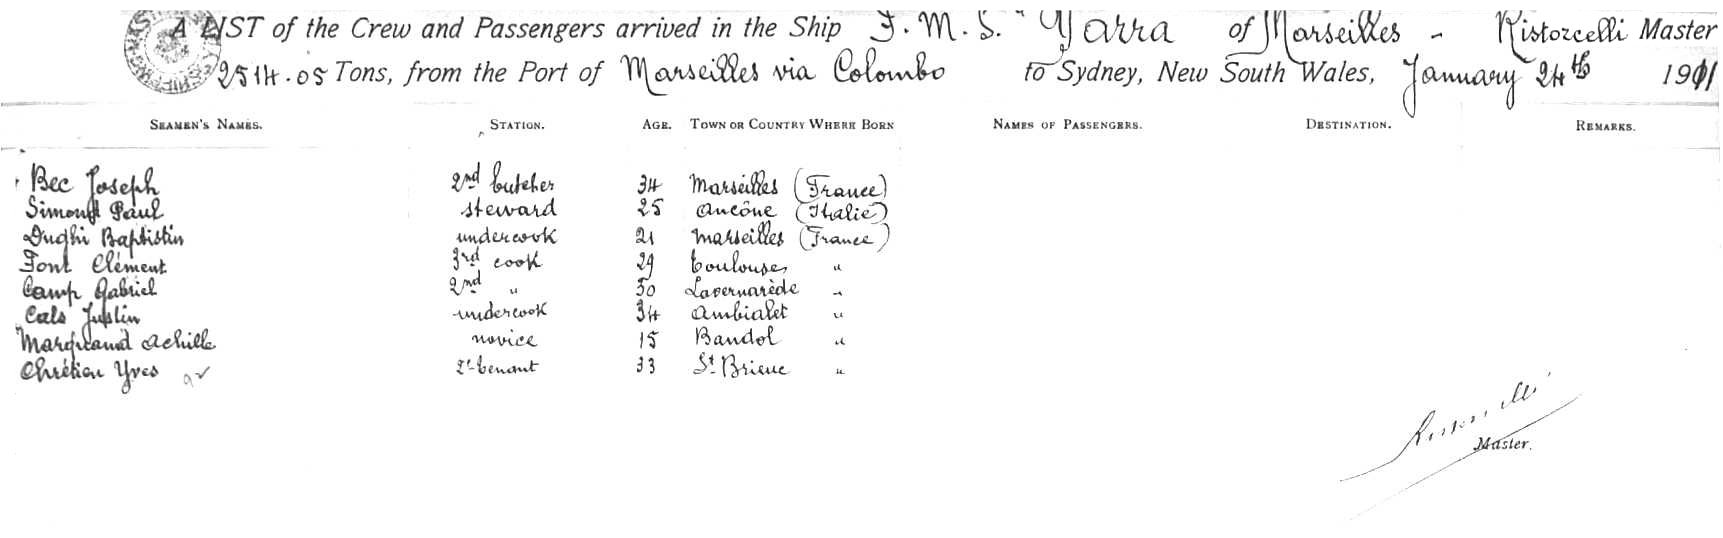 A LIST of the Crew and Passengers arrived in the Ship F.M.S. " Yarra of Marseilles - Ristorcelli Master
2514.05 Tons, from the Port of Marseilles via Colombo to Sydney, New South Wales, January 24th 1911
SEAMEN'S NAMES. STATION. AGE. TOWN OR COUNTRY WHERE BORN NAMES OF PASSENGERS. DESTINATION. REMARKS.
Bec Joseph 2nd butcher 34 Marseilles (France)
Simond Paul steward 25 Ancône (Italie)
Dughi Baptistin undercook 21 Marseilles (France)
Font Clément 3rd cook 29 Toulouse "
Camp Gabriel 2nd " 30 Lavernarède "
Cals Justin undercook 34 Ambialet "
Marquand Achille novice 15 Bandol "
Chrétien Yves 33 St. Brieuc "
Ristorcelli
Master.